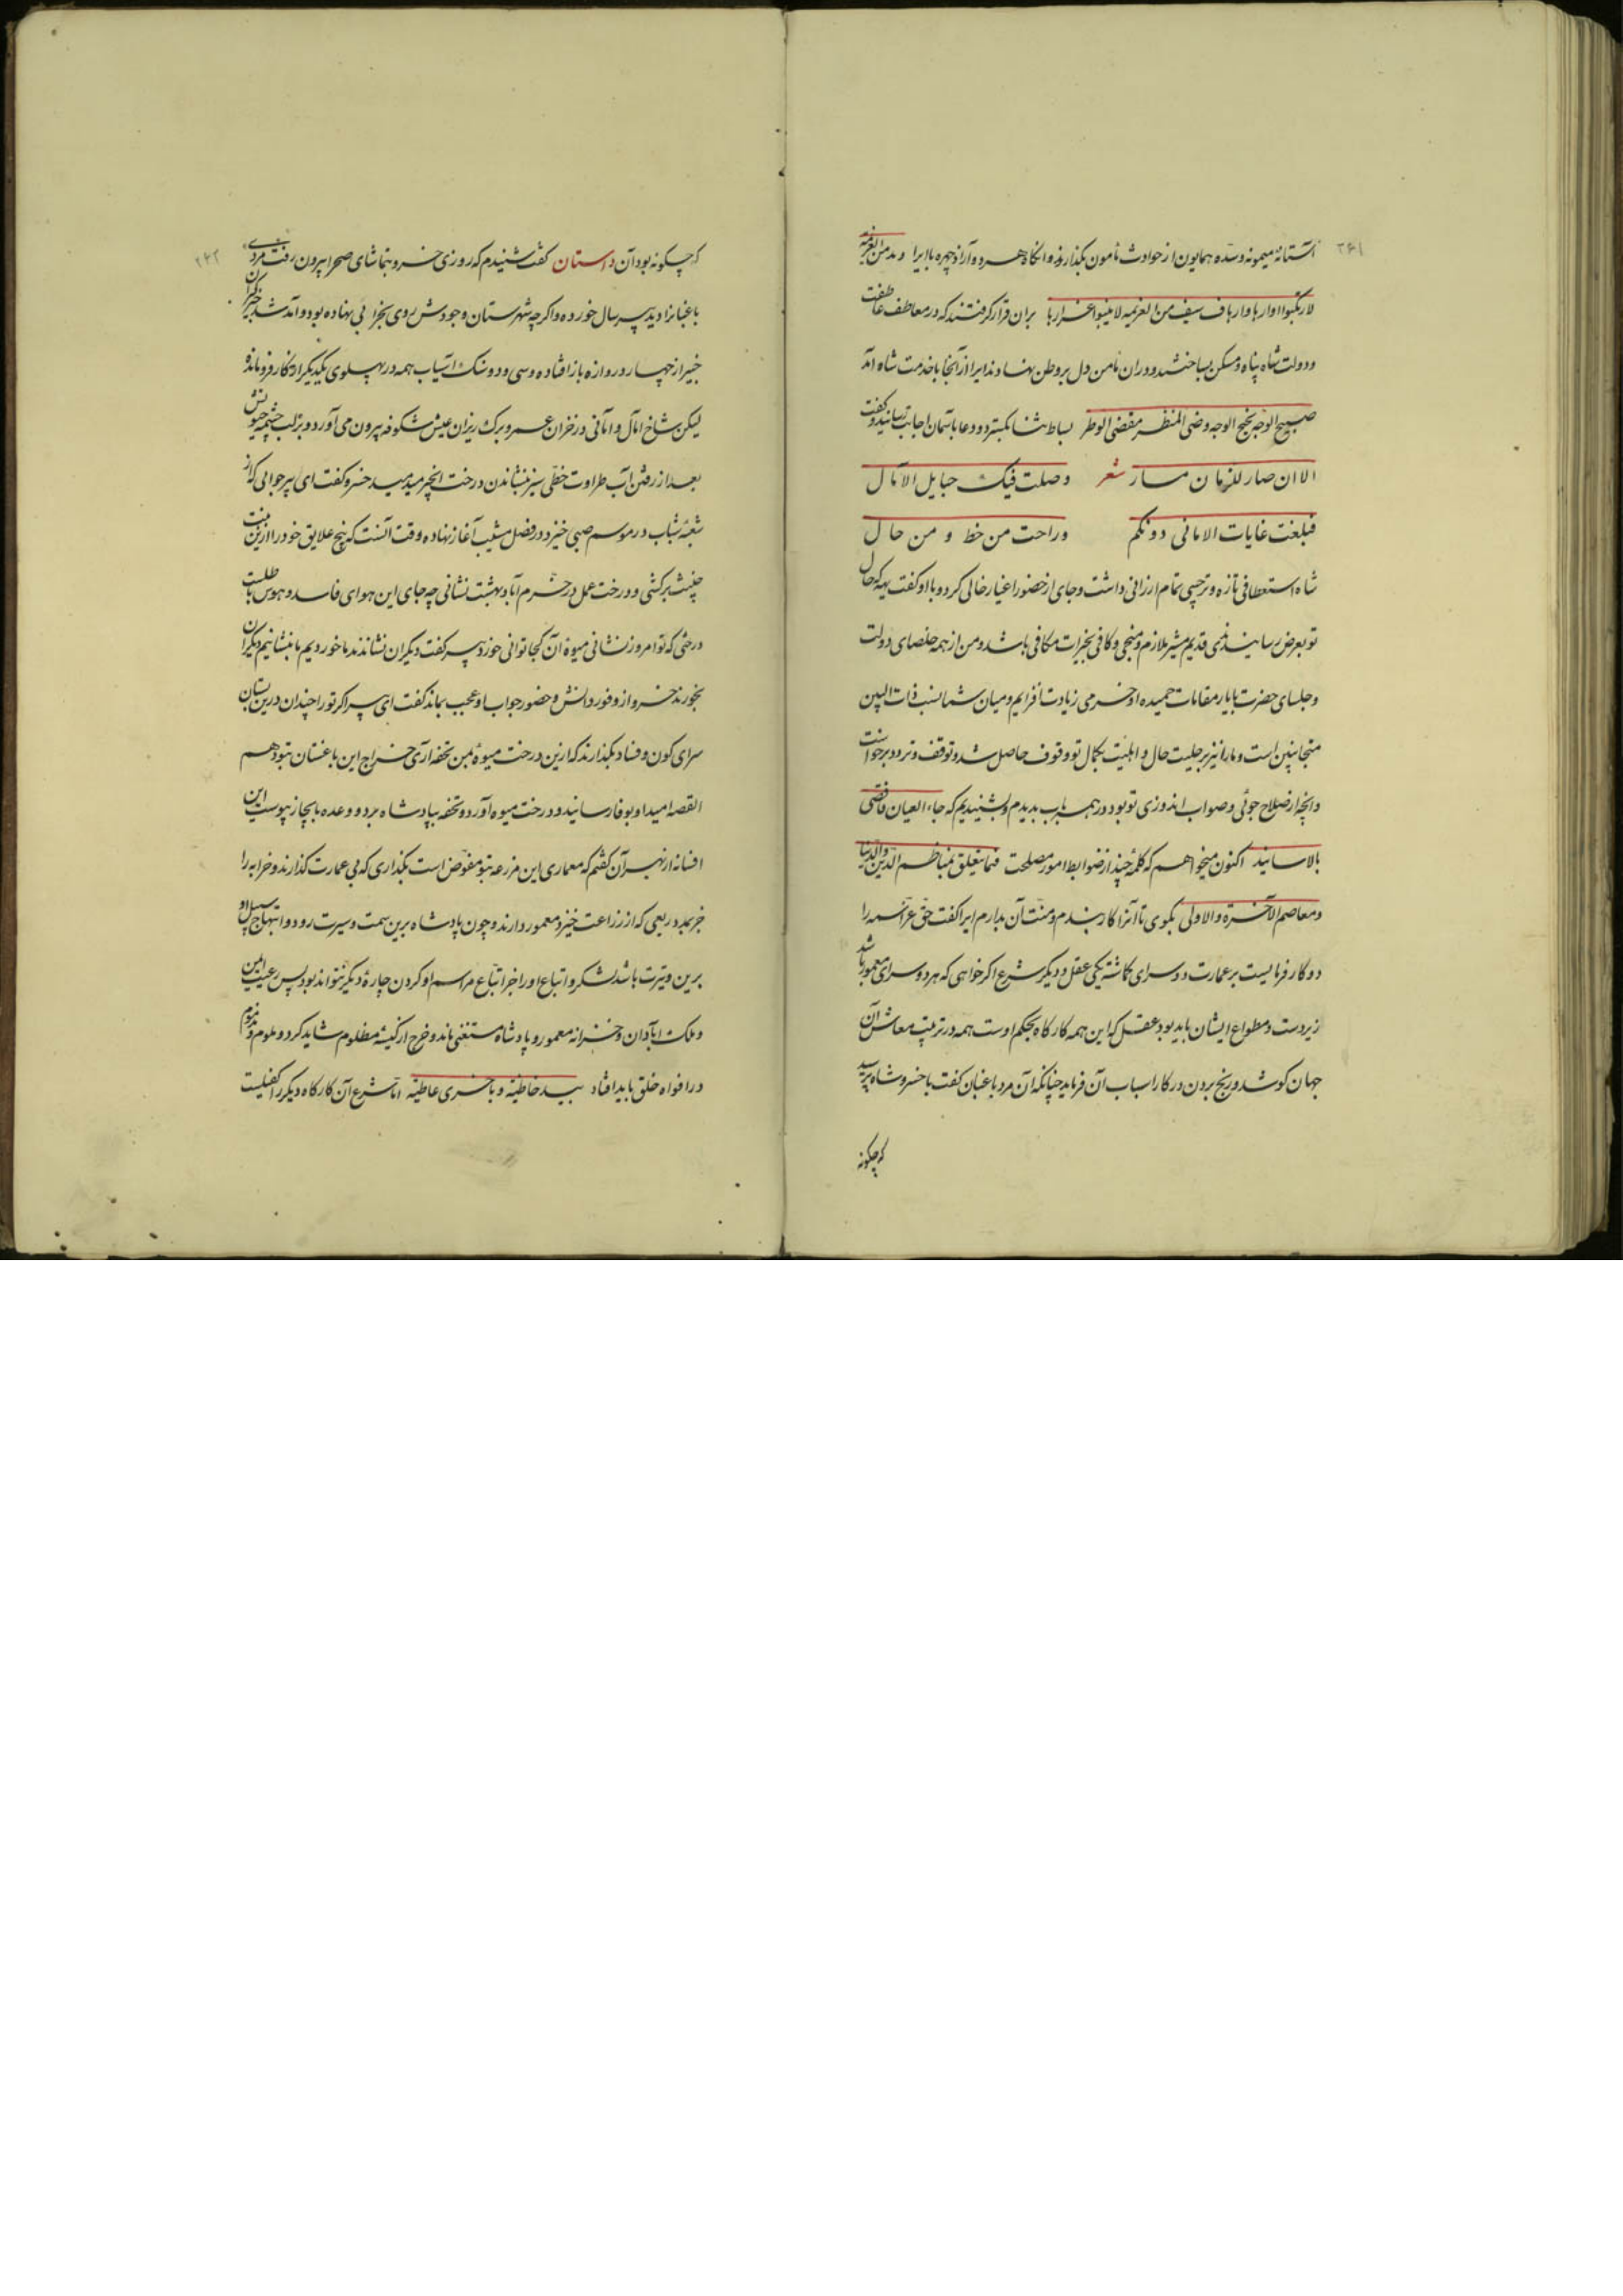 ۲۶۱
آستانهٔ میمونه و سدّه همایون از حوادث مامون بگذارند و انگاه هر دو آزاد چهره با ایرا و بدمن العزیمة
بران قرار گرفتند که در معاطف عاطفت
و دولت شاه پناه و مسکن بساختند و دران مامن دل بر وطن نهادند ایرا از آنجا بخدمت شاه آمد
صبیح الوجه نجیح الوجه وضی المنظر مقضی الوطر بساط ثنا بگسترد و دعا بآسمان اجابت رسانید و گفت
الان صار للزمان مسار شعر وصلت فیک حبایل الآمال
فبلغت غایات الامانی دونکم وراحت من خط و من حال
شاه استعطافی تازه و ترحیبی تمام ارزانی داشت و جای از حضور اغیار خالی کرد و با او گفت یهه که حال
تو بعرض رسانید ندیمی قدیم مشیر ملازم و منجی و کافی بخیرات مکافی باشد و من از همه خلصای دولت
و جلسای حضرت بایار مقامات حمیده او خرمی زیادت افزایم و میان شما نسبت ذات البین
متجانبین است و ما را نیز بر جلیت حال و اهلیت بکمال تو وقوف حاصل شد و توقف و تردد برخواست
و انچه از صلاح جوئی و صواب اندوزی تو بود در همه باب بدیدم و بشنیدیم که جاء العیان فاقضی
بالاسانید اکنون میخواهم که کلمهٔ چند از ضوابط امور مصلحت فیما یتعلق بمناظم الدین والدنیا
و معاصم الآخرة والاولی بگوی تا آنرا کار بندم و منت آن بدارم ایرا گفت حق عز اسمه را
دو کار فرمایست بر عمارت دو سرای گماشته یکی عقل و دیگر شرع اگر خواهی که هر دو سرای معمور باشد
زیردست و مطواع ایشان باید بود عقل که این همه کارگاه بحکم اوست همه در ترتیب معاش آن
جهان کوشد و رنج بردن در کار اسباب آن فرماید چنانکه آن مرد باغبان گفت با خسرو شاه پرسید
که چگونه
۲۶۲
که چگونه بود آن داستان گفت شنیدم که روزی خسرو بتماشای صحرا بیرون رفت مردی
باغبانرا دید پیر سال خورده و اگر چه شهرستان وجودش روی بخرابی نهاده بود و آمد شد خبرگیران
خبیر از چهار دروازه باز افتاده و سی و دو سنگ آسیاب همه در پهلوی یکدیگر از کار فرو مانده
لیکن شاخ آمال و امانی در خزان عمر و برگ ریزان عیش شکوفه بیرون می آورد و بر لب چشمه حیوتش
بعد از رفتن آب طراوت خطی سبز بنشاندن درخت انجیر میدمید خسرو گفت ای پیر جوانی که از
شعبه شباب در موسم صبی خیزد در فصل مشیب آغاز نهاده وقت آنست که بیخ علایق خود را ازین منبت
خبیث برکشی و درخت عمل در خرم آباد بهشت نشانی چه جای این هوای فاسد و هوس باطلست
درختی که تو امروز نشانی میوه آن کجا توانی خورد پیر گفت دیگران نشاندند ما خوردیم ما بنشانیم دیگران
بخورند خسرو از وفور دانش و حضور جواب او عجب بماند گفت ای پیر اگر تو را چندان درین بستان
سرای کون و فساد بگذارند که ازین درخت میوهٔ بمن تحفه آری خراج این باغستان بتو دهم
القصه امید او بوفا رسانید و درخت میوه آورد و تحفه بپادشاه برد و وعده بایجاز پیوست این
افسانه از بهر آن گفتم که معماری این مزرعه بتو مفوض است بگذاری که بی عمارت گذارند و خرابه را
جز بمدد ریعی که از زراعت خیزد معمور دارند و چون پادشاه برین سمت و سیرت رود و انتهاج سبیل او
برین وتیرت باشد لشکر و اتباع او را جز اتباع مراسم او کردن چارهٔ دیگر نتواند بود پس رعیت ایمن
و ملک آبادان و خزانه معمور و پادشاه مستغنی ماند و خرج از کیسهٔ مظلوم شاید کرد و ملوم و مذموم
در افواه خلق باید افتاد بید خاطئة و باخری عاطیة اما شرع آن کارگاه دیگر را کفیلست